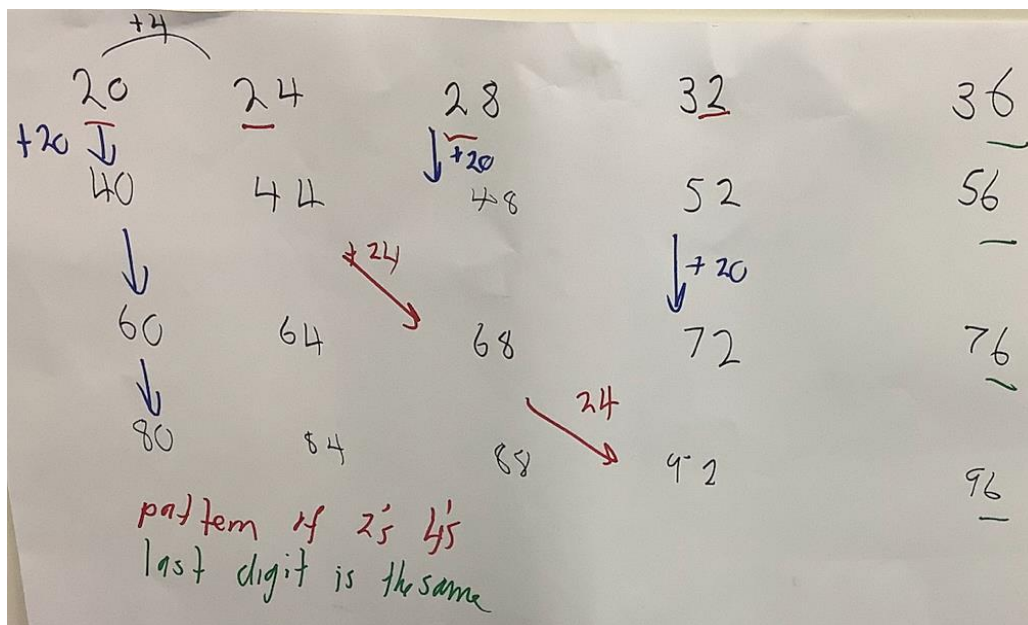 +4
20 24 28 32 36
+20 +20
40 44 48 52 56
+24 +20
60 64 68 72 76
24
80 84 88 92 96
pattern of 2's 4's
last digit is the same